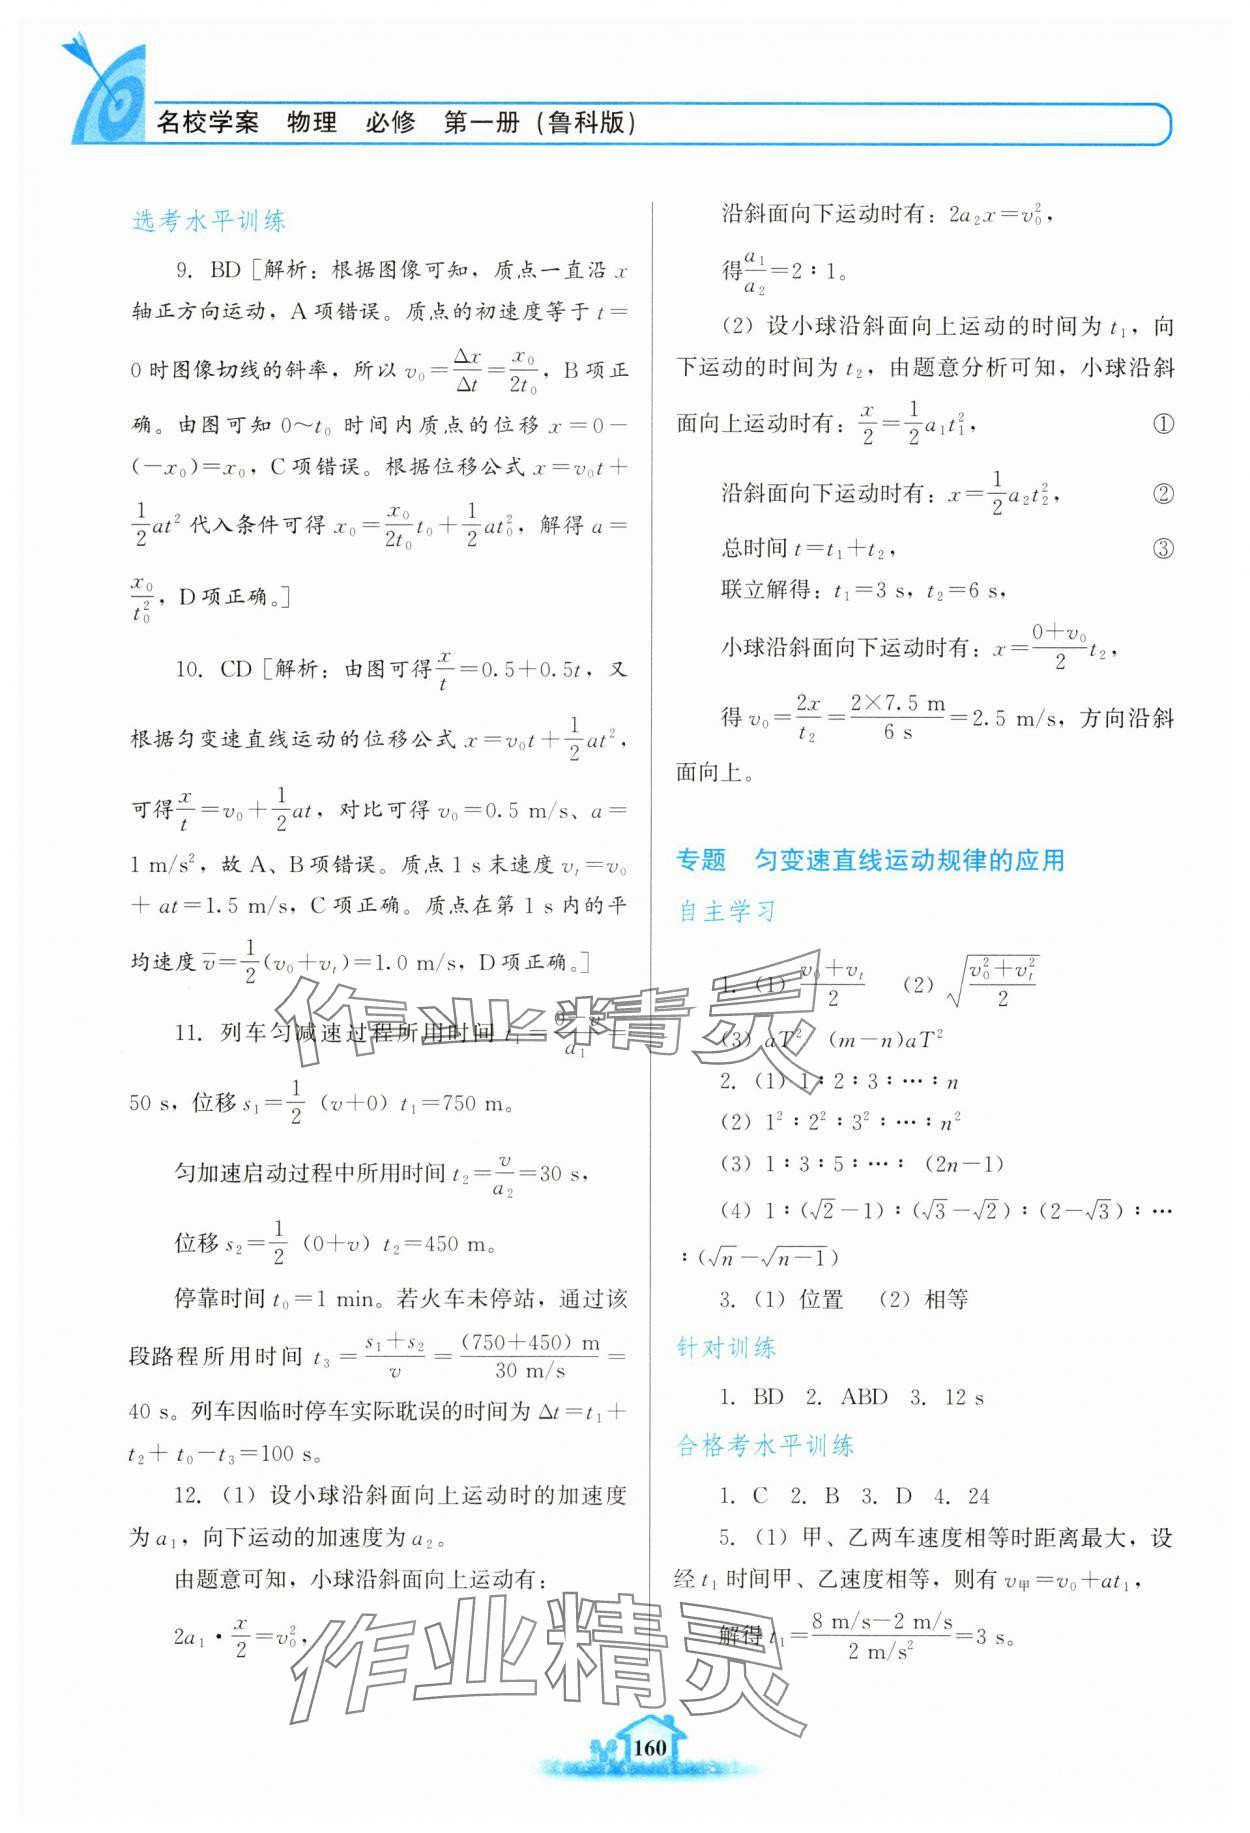 名校学案 物理 必修 第一册（鲁科版）
选考水平训练
9. BD［解析：根据图像可知，质点一直沿 x
轴正方向运动，A 项错误。质点的初速度等于 t＝
0 时图像切线的斜率，所以 v₀＝Δx/Δt＝x₀/2t₀，B 项正
确。由图可知 0～t₀ 时间内质点的位移 x＝0－
(－x₀)＝x₀，C 项错误。根据位移公式 x＝v₀t＋
1/2at² 代入条件可得 x₀＝x₀/2t₀ t₀＋1/2at₀²，解得 a＝
x₀/t₀²，D 项正确。］
10. CD［解析：由图可得x/t＝0.5＋0.5t，又
根据匀变速直线运动的位移公式 x＝v₀t＋1/2at²，
可得x/t＝v₀＋1/2at，对比可得 v₀＝0.5 m/s、a＝
1 m/s²，故 A、B 项错误。质点 1 s 末速度 vₜ＝v₀
＋ at＝1.5 m/s，C 项正确。质点在第 1 s 内的平
均速度 v̄＝1/2(v₀＋vₜ)＝1.0 m/s，D 项正确。］
11. 列车匀减速过程所用时间 t₁＝(0－v)/a₁＝
50 s，位移 s₁＝1/2（v＋0）t₁＝750 m。
匀加速启动过程中所用时间 t₂＝v/a₂＝30 s，
位移 s₂＝1/2（0＋v）t₂＝450 m。
停靠时间 t₀＝1 min。若火车未停站，通过该
段路程所用时间 t₃＝(s₁＋s₂)/v＝(750＋450) m/30 m/s＝
40 s。列车因临时停车实际耽误的时间为 Δt＝t₁＋
t₂＋ t₀－t₃＝100 s。
12.（1）设小球沿斜面向上运动时的加速度
为 a₁，向下运动的加速度为 a₂。
由题意可知，小球沿斜面向上运动有：
2a₁·x/2＝v₀²，
沿斜面向下运动时有：2a₂x＝v₀²，
得a₁/a₂＝2∶1。
（2）设小球沿斜面向上运动的时间为 t₁，向
下运动的时间为 t₂，由题意分析可知，小球沿斜
面向上运动时有：x/2＝1/2a₁t₁²， ①
沿斜面向下运动时有：x＝1/2a₂t₂²， ②
总时间 t＝t₁＋t₂， ③
联立解得：t₁＝3 s，t₂＝6 s，
小球沿斜面向下运动时有：x＝(0＋v₀)/2 t₂，
得 v₀＝2x/t₂＝2×7.5 m/6 s＝2.5 m/s，方向沿斜
面向上。
专题 匀变速直线运动规律的应用
自主学习
1.（1）(v₀＋vₜ)/2 （2）√((v₀²＋vₜ²)/2)
（3）aT² (m－n)aT²
2.（1）1∶2∶3∶…∶n
（2）1²∶2²∶3²∶…∶n²
（3）1∶3∶5∶…∶（2n－1）
（4）1∶(√2－1)∶(√3－√2)∶(2－√3)∶…
∶(√n－√(n－1))
3.（1）位置 （2）相等
针对训练
1. BD 2. ABD 3. 12 s
合格考水平训练
1. C 2. B 3. D 4. 24
5.（1）甲、乙两车速度相等时距离最大，设
经 t₁ 时间甲、乙速度相等，则有 v甲＝v₀＋at₁，
解得 t₁＝(8 m/s－2 m/s)/2 m/s²＝3 s。
作业精灵
作业精灵
160